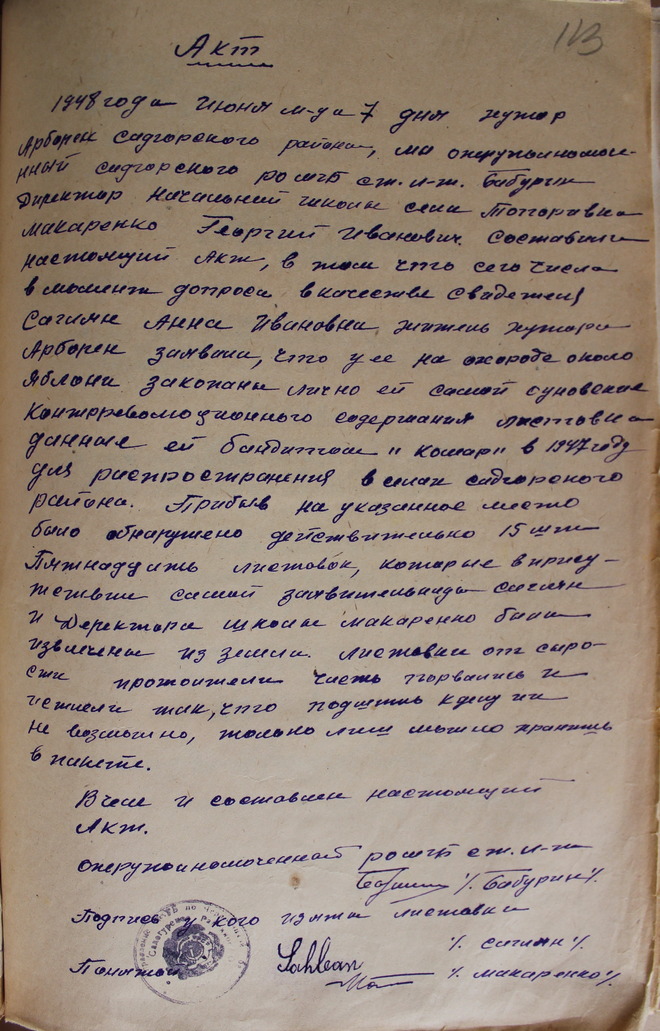 113
Акт
1948 года июня м-ца 7 дня хутор
Арборен Садгорского района, мы оперуполномочен-
ный садгорского роМГБ ст. л-т. Бабурин
Директор Начальной школы села Топоровка
Макаренко Георгий Иванович. Составили
настоящий Акт, в том что сего числа
в момент допроса в качестве свидетеля
Сагиян Анна Ивановна житель хутора
Арборен заявила, что у ее на огороде около
Яблони закопаны лично ей самой
Контрреволюционного содержания листовки
данные ей бандитом "Комар" в 1947 году
для распространения в селах садгорского
района. Прибыв на указанное место
было обнаружено действительно 15 шт
Пятнадцать листовок, которые в прису-
тствии самой заявительницы сагиян
и Деректора школы Макаренко были
извлечены из земли. Листовки от сыро-
сти часть порвались и
истлели так, что подшить к делу их
не возможно, только лиш можно хранить
в пакете.
В чем и составлен настоящий
Акт.
оперуполномоченный роМГБ ст. л-т
/. Бабурин /.
Подпись у кого изята листовки
Sahlean /. сагиян /.
Понятой /. Макаренко /.